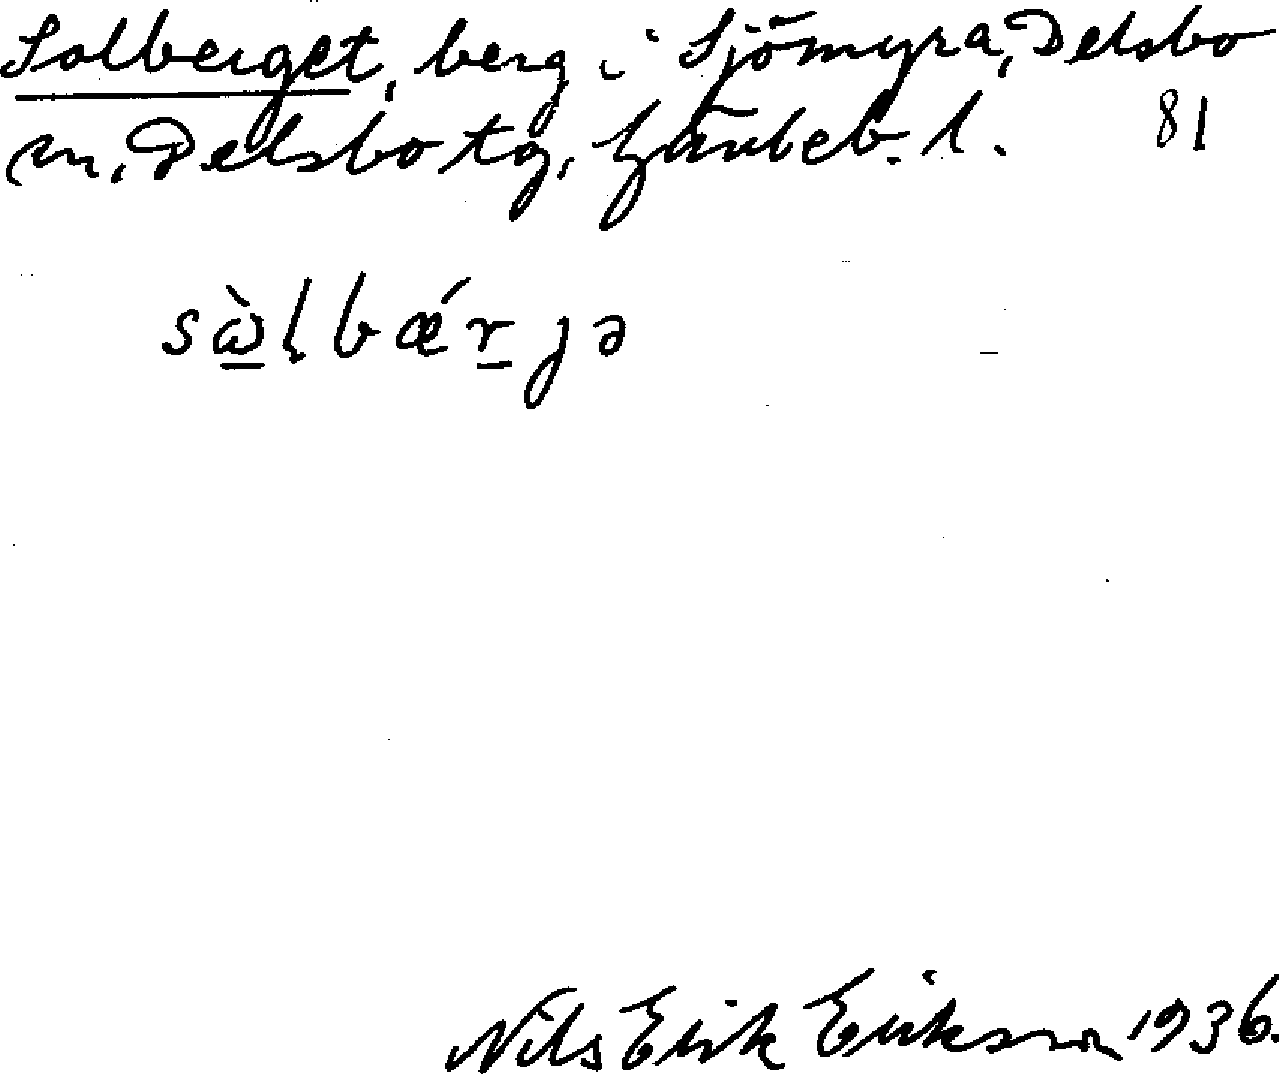 Solberget, berg i Sjömyra, Delsbo
sn, Delsbo tg, Gävleb. l. 81
sɷ̀lbǽrɟə
Nils Erik Eriksson 1936.